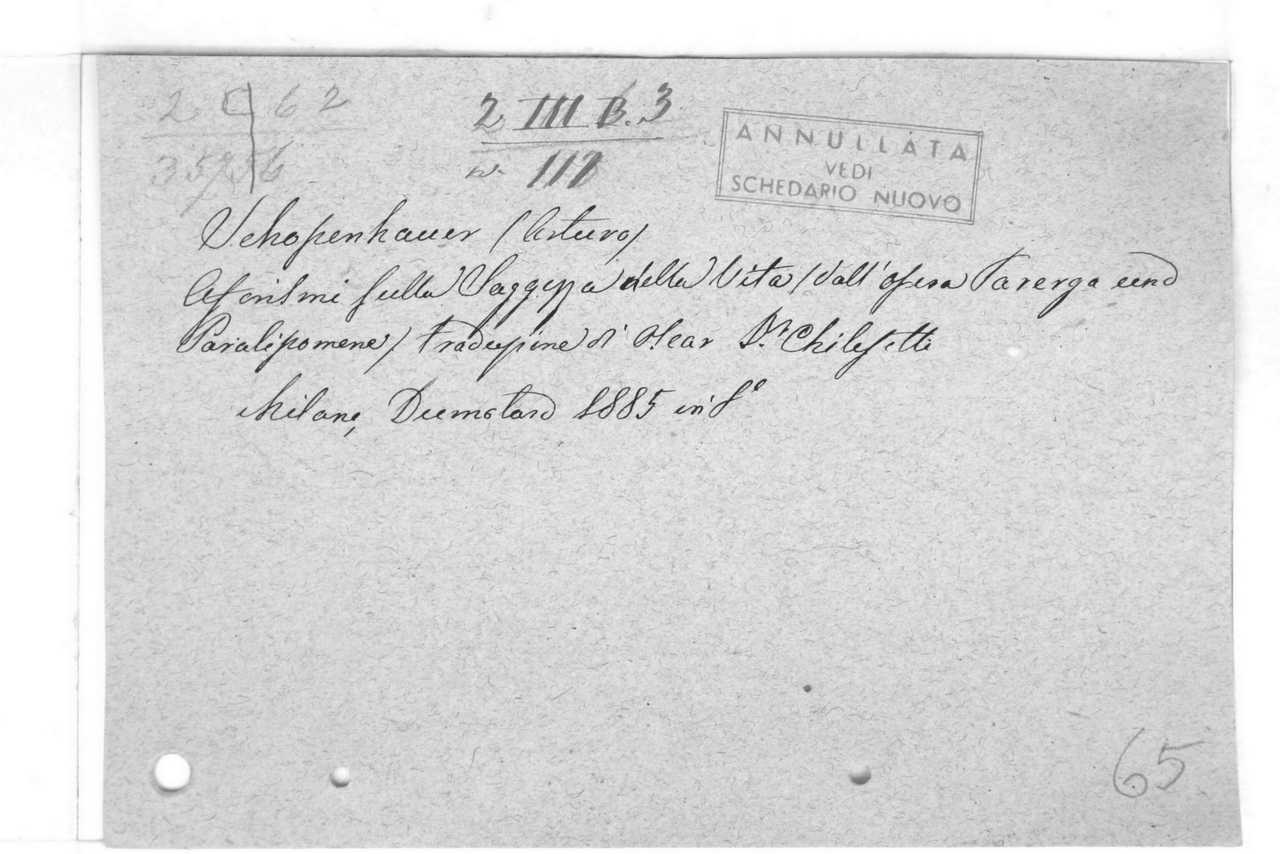 2 C 6 2
2 III B. 3
n. 117
ANNULLATA
VEDI
SCHEDARIO NUOVO
Schopenhauer (Arturo)
Aforismi sulla Saggezza della Vita (dall'opera Parerga und
Paralipomene) traduzione d' Oscar Dr. Chilesotti
Milano, Dumolard 1885 in 8º
65